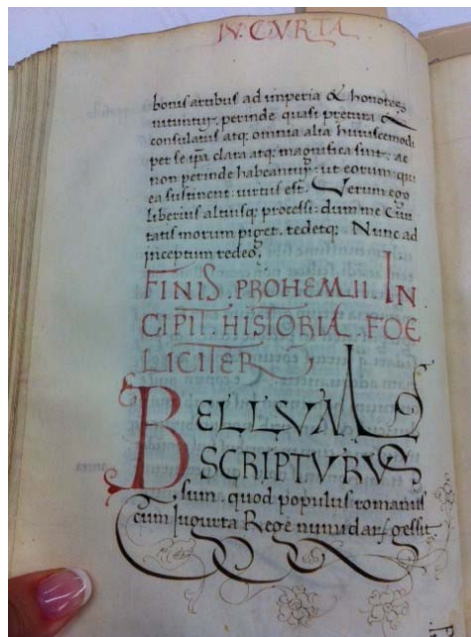 IV. CVRTA
bonis artibus ad imperia & honores
nituntur. perinde quasi pretura &
consulatus atq; omnia alia huiuscemodi
per se ipa clara atq; magnifica sint. ac
non perinde habeantur. ut eorum. qui
ea sustinent. uirtus est. Verum ego
liberius altiusq; processi. dum me Ciui
tatis morum piget. tedetq; Nunc ad
inceptum redeo.
FINIS. PROHEMII. IN
CIPIT. HISTORIA. FOE
LICITER
BELLVM
SCRIPTVRVS
sum. quod populus romanus
cum Iugurta Rege numidar gessit